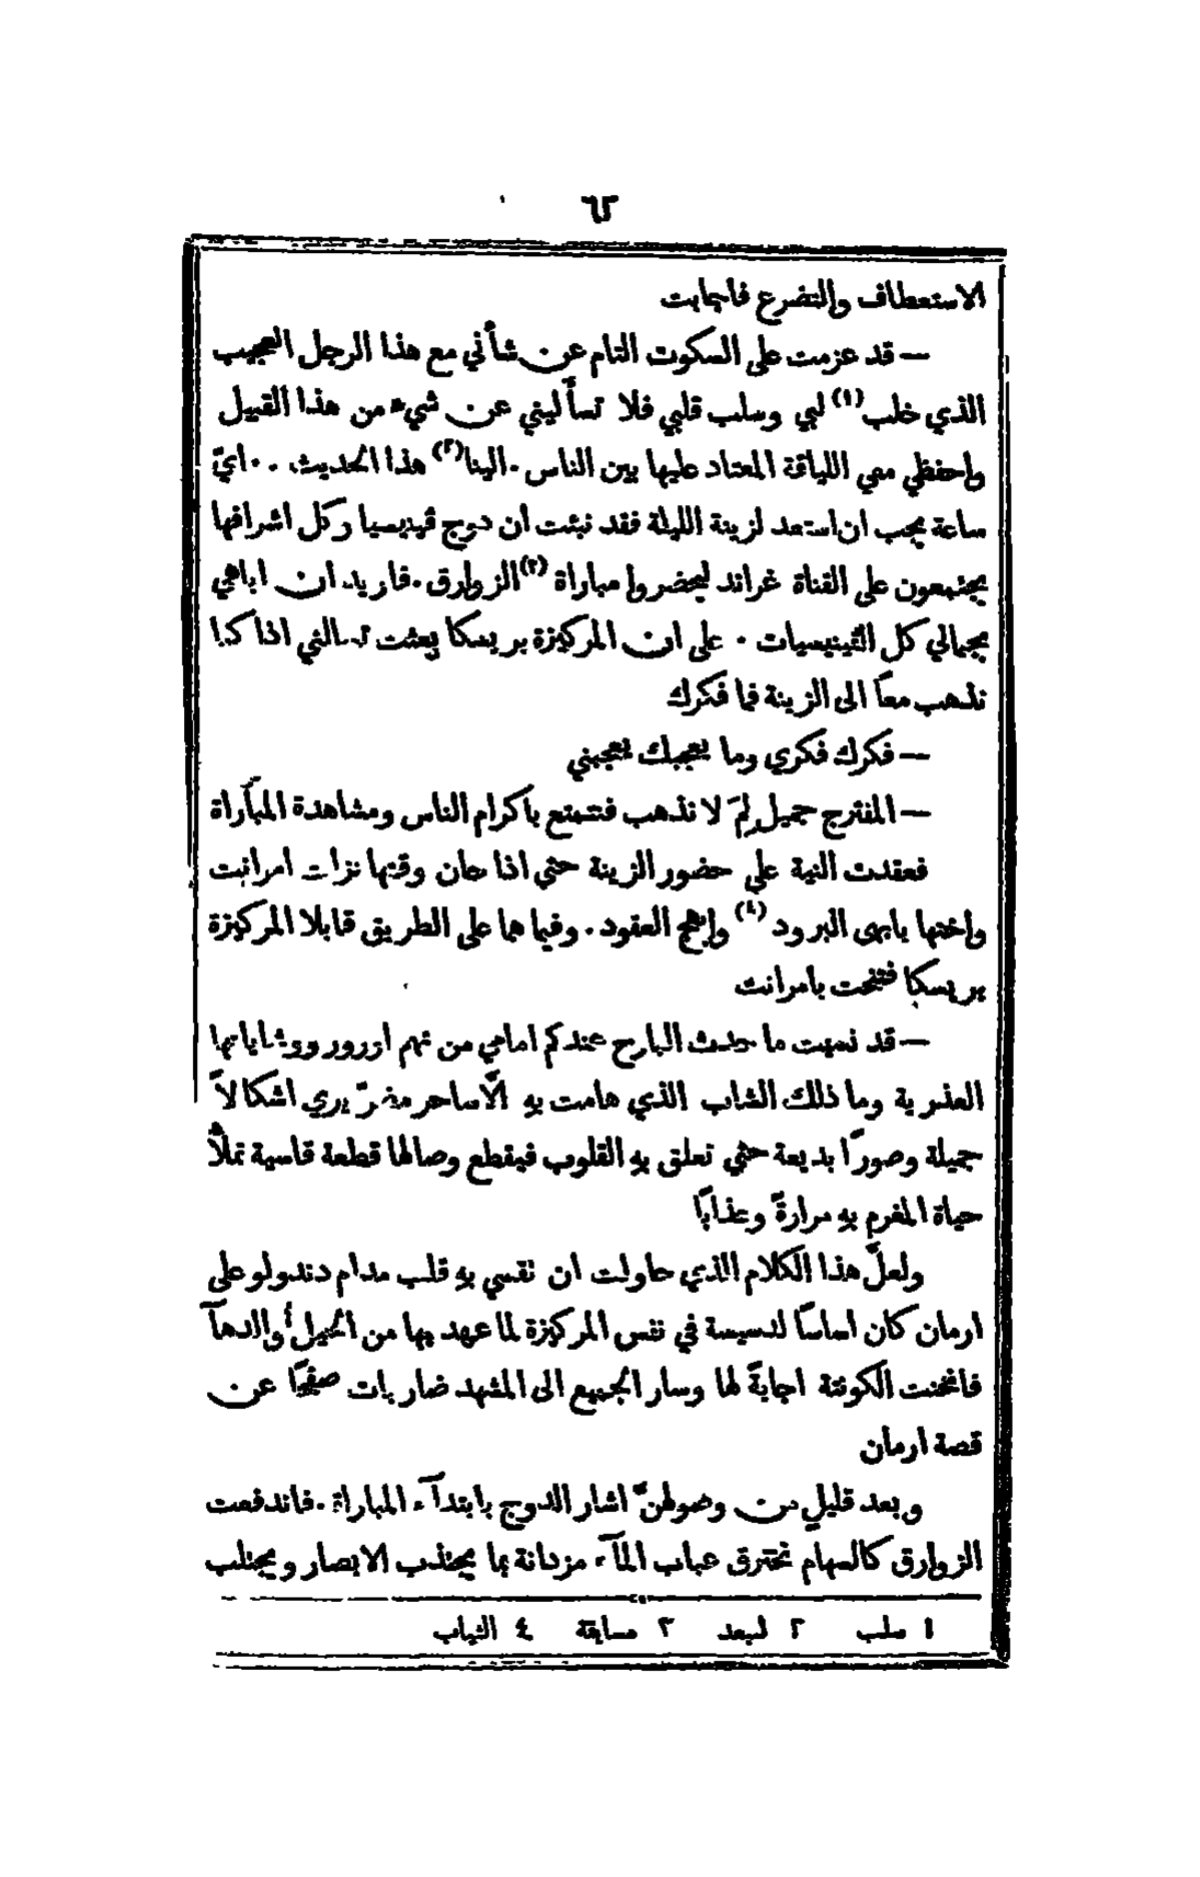 ٦٢
الاستعطاف والتضرع فاجابت
— قد عزمت على السكوت التام عن شأني مع هذا الرجل العجيب
الذي خلب (١) لبي وسلب قلبي فلا تسأليني عن شيء من هذا القبيل
واحفظي معي اللياقة المعتاد عليها بين الناس . الينا (٢) هذا الحديث . . ايّ
ساعة يجب ان استعد لزينة الليلة فقد نبئت أن دوج ڤينيسيا وكل اشرافها
يجتمعون على القناة غراند ليحضروا مباراة (٣) الزوارق . فاريد ان اباهي
بجمالي كل الڤينيسيات . على ان المركيزة بريسكا بعثت تسالني اذا كنا
نذهب معاً الى الزينة فما فكرك
— فكرك فكري وما يعجبك يعجبني
— المفترج جميل لِمَ لا نذهب فنتمتع باكرام الناس ومشاهدة المبآراة
فعقدت النية على حضور الزينة حتى اذا حان وقتها نزلت امرانت
واختها بابهى البرود (٤) وابهج العقود . وفيما هما على الطريق قابلا المركيزة
بريسكا فتنحت بامرانت
— قد نميت ما حدث البارح عندكم امامي من تهم اورور ووشاياتها
العذرية وما ذلك الشاب الذي هامت به الّا ساحر مضرّ يري اشكالاً
جميلة وصورًا بديعة حتى تعلق به القلوب فيقطع وصالها قطعة قاسية تملأُ
حياة المغرم به مرارةً وعذابًا
ولعلَّ هذا الكلام الذي حاولت ان تقسي به قلب مدام دندولو على
ارمان كان اساسًا لدسيسة في نفس المركيزة لما عهد بها من الميل والدهآ
فانحنت الكونتة اجابةً لها وسار الجميع الى المشهد ضاربات صفحًا عن
قصة ارمان
وبعد قليل من وصولهنَّ اشار الدوج بابتدآء المباراة . فاندفعت
الزوارق كالسهام تخترق عباب المآء مزدانة بما يجتذب الابصار ويجتلب
١ سلب ٢ لبعد ٣ مسابقة ٤ الثياب